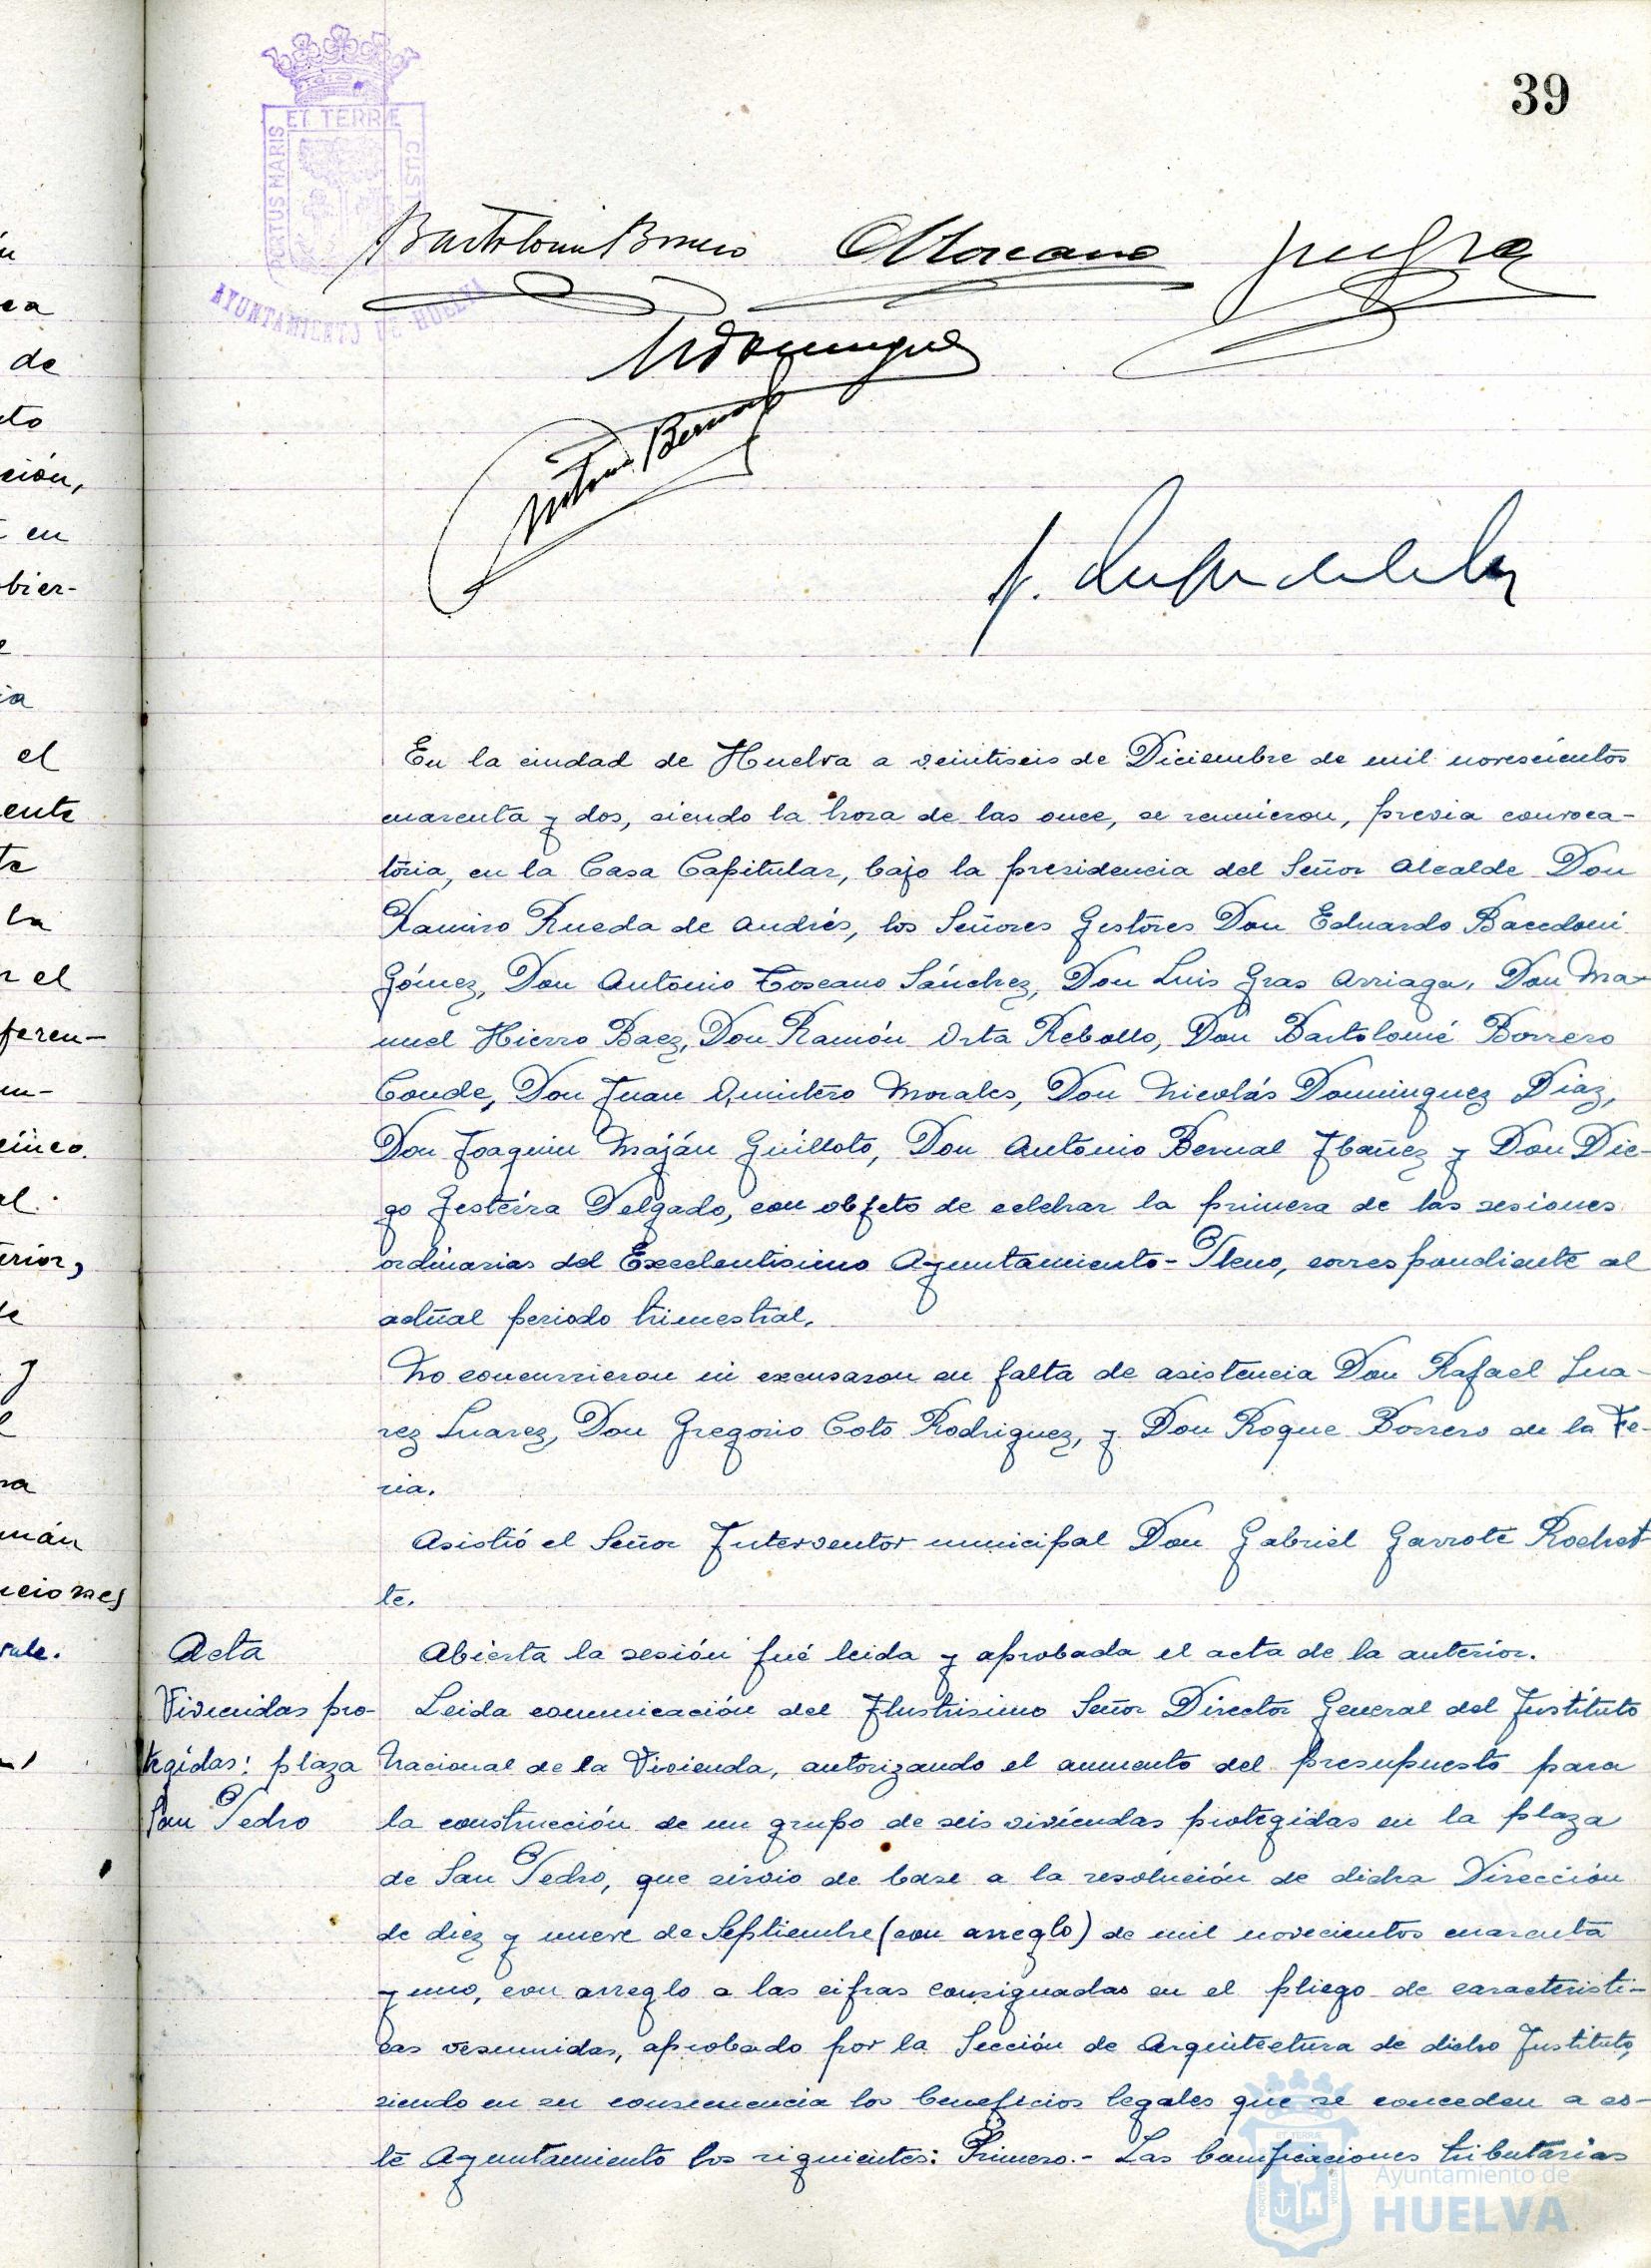 39
ET TERRÆ
PORTUS MARIS
CUST
AYUNTAMIENTO DE HUELVA
Bartolomé Borrero
Antonio Bernal
ea
de
ción,
en
bier-
el
ente
la
r el
feren-
cinco.
al.
erior,
y
mán
ciones
vale.
En la ciudad de Huelva a veintiseis de Diciembre de mil novescientos
cuarenta y dos, siendo la hora de las once, se reunieron, previa convoca-
toria, en la Casa Capitular, bajo la presidencia del Señor Alcalde Don
Ramiro Rueda de Andrés, los Señores Gestores Don Eduardo Bacedoni
Gómez, Don Antonio Toscano Sánchez, Don Luis Gras Arriaga, Don Ma-
nuel Hierro Baez, Don Ramón Orta Rebollo, Don Bartolomé Borrero
Conde, Don Juan Quintero Morales, Don Nicolás Dominguez Diaz,
Don Joaquin Maján Guilloto, Don Antonio Bernal Ibañez y Don Die-
go Gesteira Delgado, con objeto de celebrar la primera de las sesiones
ordinarias del Excelentisimo Ayuntamiento-Pleno, correspondiente al
actual periodo trimestral.
No concurrieron ni excusaron su falta de asistencia Don Rafael Sua-
rez Suarez, Don Gregorio Coto Rodriguez, y Don Roque Borrero de la Fe-
ria.
Asistió el Señor Interventor municipal Don Gabriel Garrote Rochet-
te.
Acta
Abierta la sesión fué leida y aprobada el acta de la anterior.
Viviendas pro-
tegidas: plaza
San Pedro
Leida comunicación del Ilustrisimo Señor Director General del Instituto
Nacional de la Vivienda, autorizando el aumento del presupuesto para
la construcción de un grupo de seis viviendas protegidas en la plaza
de San Pedro, que sirvio de base a la resolución de dicha Dirección
de diez y nueve de Septiembre (con arreglo) de mil novecientos cuarenta
y uno, con arreglo a las cifras consignadas en el pliego de caracteristi-
cas resumidas, aprobado por la Sección de Arquitectura de dicho Instituto,
siendo en su consecuencia los beneficios legales que se conceden a es-
te Ayuntamiento los siguientes: Primero.- Las bonificaciones tributarias
Ayuntamiento de
HUELVA